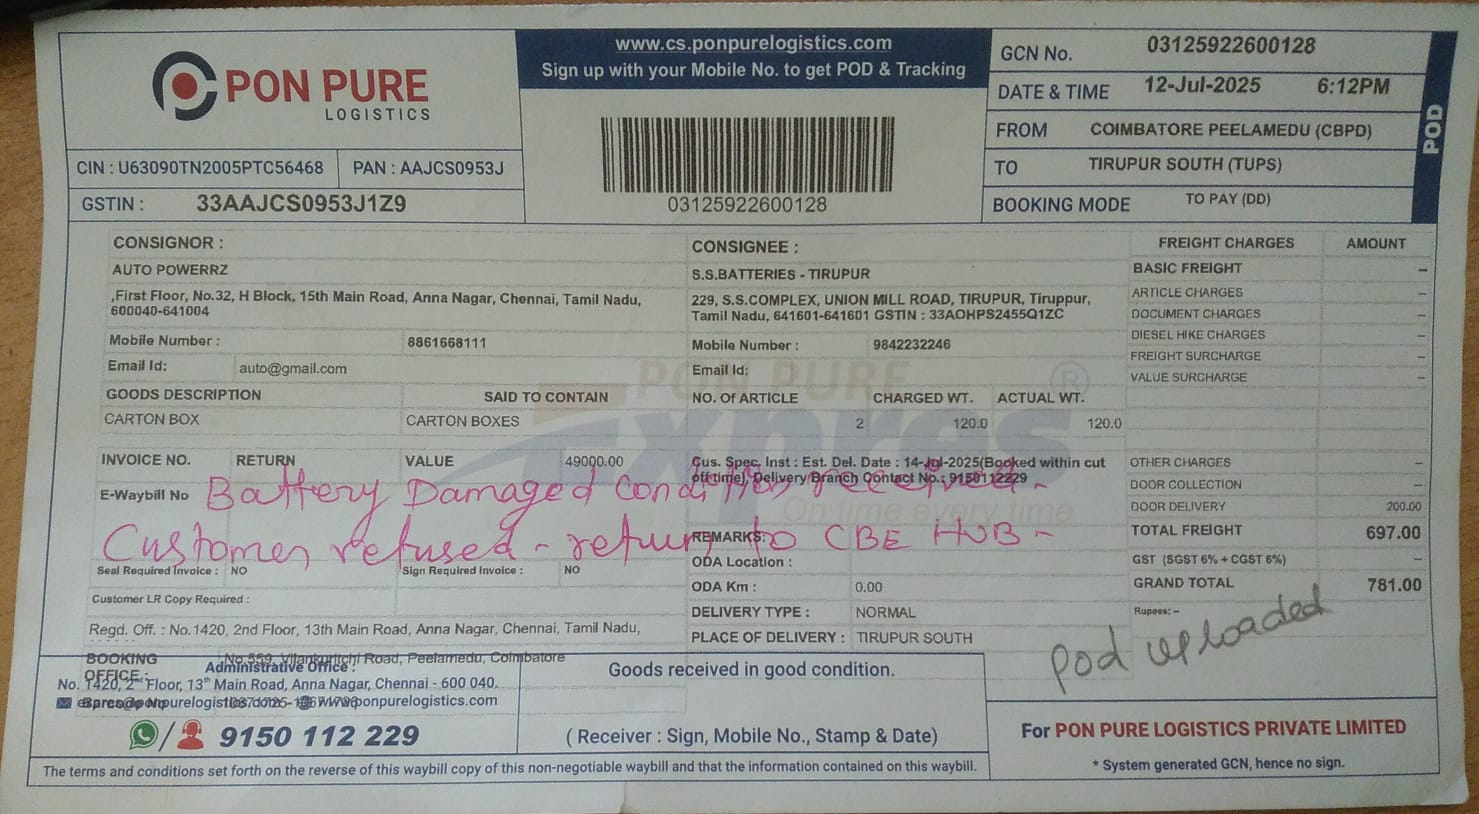 PON PURE
LOGISTICS
CIN : U63090TN2005PTC56468 PAN : AAJCS0953J
GSTIN : 33AAJCS0953J1Z9
www.cs.ponpurelogistics.com
Sign up with your Mobile No. to get POD & Tracking
03125922600128
GCN No. 03125922600128
DATE & TIME 12-Jul-2025 6:12PM
FROM COIMBATORE PEELAMEDU (CBPD)
TO TIRUPUR SOUTH (TUPS)
BOOKING MODE TO PAY (DD)
POD
CONSIGNOR :
AUTO POWERRZ
,First Floor, No.32, H Block, 15th Main Road, Anna Nagar, Chennai, Tamil Nadu,
600040-641004
Mobile Number : 8861668111
Email Id: auto@gmail.com
GOODS DESCRIPTION SAID TO CONTAIN
CARTON BOX CARTON BOXES
INVOICE NO. RETURN VALUE 49000.00
E-Waybill No
Battery Damaged condition received -
Customer refused - return to CBE HUB -
Seal Required Invoice : NO Sign Required Invoice : NO
Customer LR Copy Required :
Regd. Off. : No.1420, 2nd Floor, 13th Main Road, Anna Nagar, Chennai, Tamil Nadu,
CONSIGNEE :
S.S.BATTERIES - TIRUPUR
229, S.S.COMPLEX, UNION MILL ROAD, TIRUPUR, Tiruppur,
Tamil Nadu, 641601-641601 GSTIN : 33AOHPS2455Q1ZC
Mobile Number : 9842232246
Email Id:
PON PURE
Expres
®
On time every time
NO. Of ARTICLE CHARGED WT. ACTUAL WT.
2 120.0 120.0
Cus. Spec. Inst : Est. Del. Date : 14-Jul-2025(Booked within cut
off time), Delivery Branch Contact No.: 9150112229
REMARKS:
ODA Location :
ODA Km : 0.00
DELIVERY TYPE : NORMAL
PLACE OF DELIVERY : TIRUPUR SOUTH
FREIGHT CHARGES AMOUNT
BASIC FREIGHT –
ARTICLE CHARGES –
DOCUMENT CHARGES –
DIESEL HIKE CHARGES –
FREIGHT SURCHARGE –
VALUE SURCHARGE –
OTHER CHARGES –
DOOR COLLECTION –
DOOR DELIVERY 200.00
TOTAL FREIGHT 697.00
GST (SGST 6% + CGST 6%) –
GRAND TOTAL 781.00
Rupees: –
Pod uploaded
BOOKING OFFICE : No.559, Vilankurichi Road, Peelamedu, Coimbatore
Administrative Office :
No. 1420, 2nd Floor, 13th Main Road, Anna Nagar, Chennai - 600 040.
www.ponpurelogistics.com
9150 112 229
Goods received in good condition.
( Receiver : Sign, Mobile No., Stamp & Date)
For PON PURE LOGISTICS PRIVATE LIMITED
* System generated GCN, hence no sign.
The terms and conditions set forth on the reverse of this waybill copy of this non-negotiable waybill and that the information contained on this waybill.